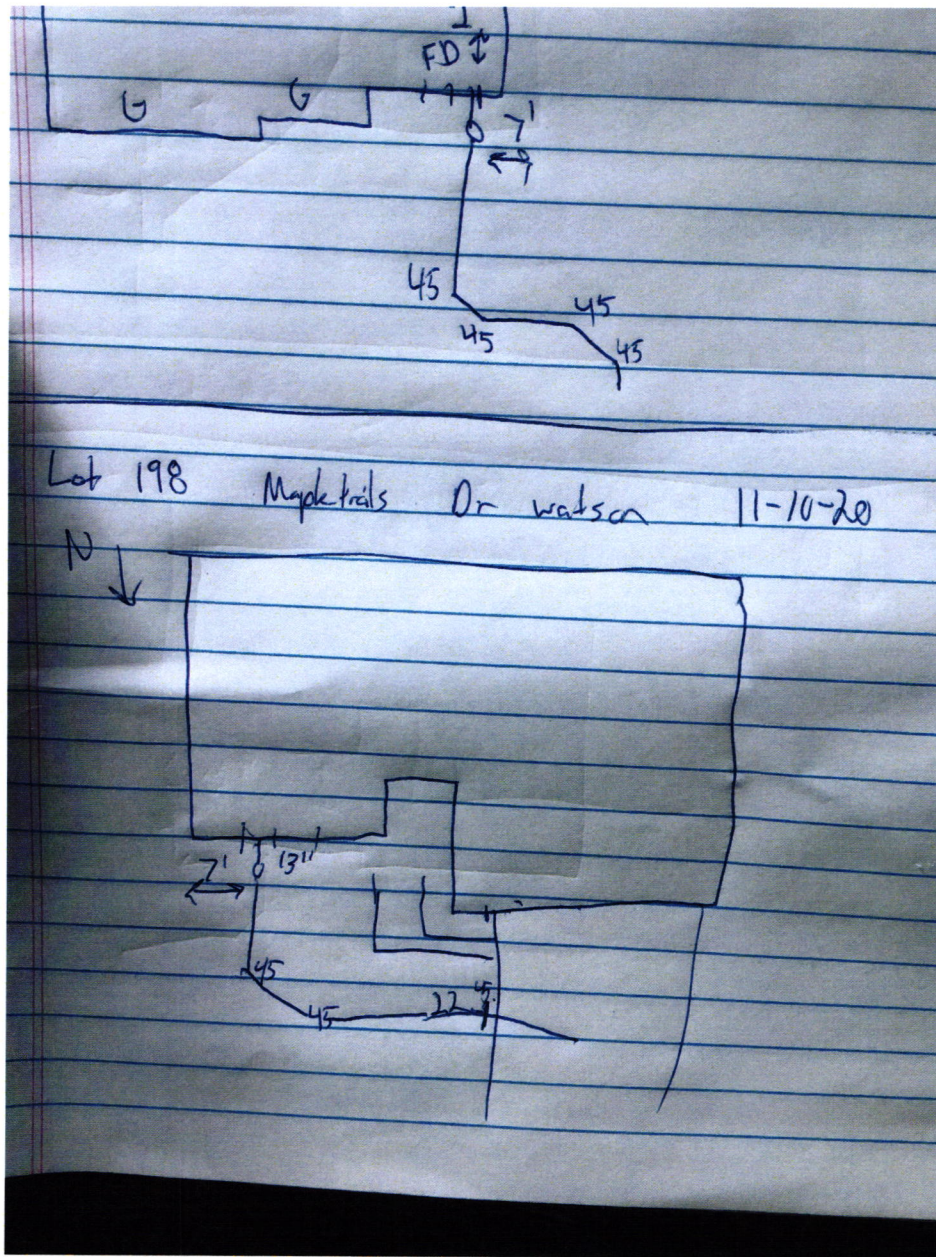 FD
G G
7'
45
45
45
45
Lot 198 Mapletrails Dr watson 11-10-20
N
13"
7'
45
45 22 45